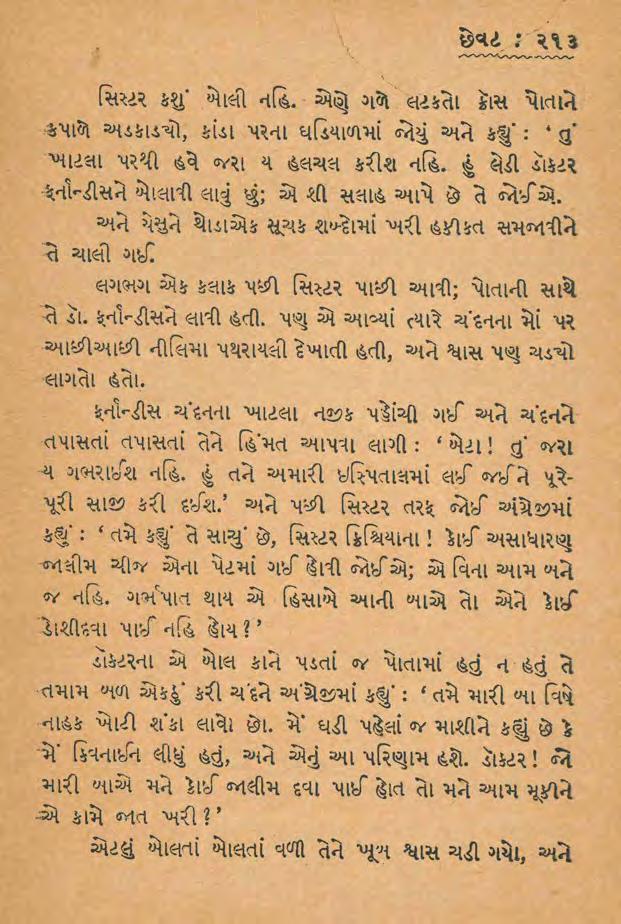 છેવટ : ૨૧૩
સિસ્ટર કશું બોલી નહિ. એણે ગળે લટકતો ક્રૉસ પોતાને
કપાળે અડકાડ્યો, કાંડા પરના ઘડિયાળમાં જોયું અને કહ્યું : ‘ તું
ખાટલા પરથી હવે જરા ય હલચલ કરીશ નહિ. હું લેડી ડૉક્ટર
ફર્નાન્ડીસને બોલાવી લાવું છું; એ શી સલાહ આપે છે તે જોઈએ.
અને યેસુને થોડાએક સૂચક શબ્દોમાં ખરી હકીકત સમજાવીને
તે ચાલી ગઈ.
લગભગ એક કલાક પછી સિસ્ટર પાછી આવી; પોતાની સાથે
તે ડૉ. ફર્નાન્ડીસને લાવી હતી. પણ એ આવ્યાં ત્યારે ચંદનના મોં પર
આછીઆછી નીલિમા પથરાયલી દેખાતી હતી, અને શ્વાસ પણ ચડ્યો
લાગતો હતો.
ફર્નાન્ડીસ ચંદનના ખાટલા નજીક પહોંચી ગઈ અને ચંદનને
તપાસતાં તપાસતાં તેને હિંમત આપવા લાગી : ‘ બેટા! તું જરા
ય ગભરાઈશ નહિ. હું તને અમારી ઇસ્પિતાલમાં લઈ જઈને પૂરે-
પૂરી સાજી કરી દઈશ.’ અને પછી સિસ્ટર તરફ જોઈ અંગ્રેજીમાં
કહ્યું : ‘ તમે કહ્યું તે સાચું છે, સિસ્ટર ક્રિશ્ચિયાના ! કોઈ અસાધારણ
જાલીમ ચીજ એના પેટમાં ગઈ હોવી જોઈએ; એ વિના આમ બને
જ નહિ. ગર્ભપાત થાય એ હિસાબે આની બાએ તો એને કોઈ
ડોશીદવા પાઈ નહિ હોય ? ’
ડૉક્ટરના એ બોલ કાને પડતાં જ પોતામાં હતું ન હતું તે
તમામ બળ એકઠું કરી ચંદને અંગ્રેજીમાં કહ્યું : ‘ તમે મારી બા વિષે
નાહક ખોટી શંકા લાવો છો. મેં ઘડી પહેલાં જ માશીને કહ્યું છે કે
મેં ક્વિનાઈન લીધું હતું, અને એનું આ પરિણામ હશે. ડૉક્ટર ! જો
મારી બાએ મને કોઈ જાલીમ દવા પાઈ હોત તો મને આમ મૂકીને
એ કામે જાત ખરી ? ’
એટલું બોલતાં બોલતાં વળી તેને ખૂબ શ્વાસ ચડી ગયો, અને